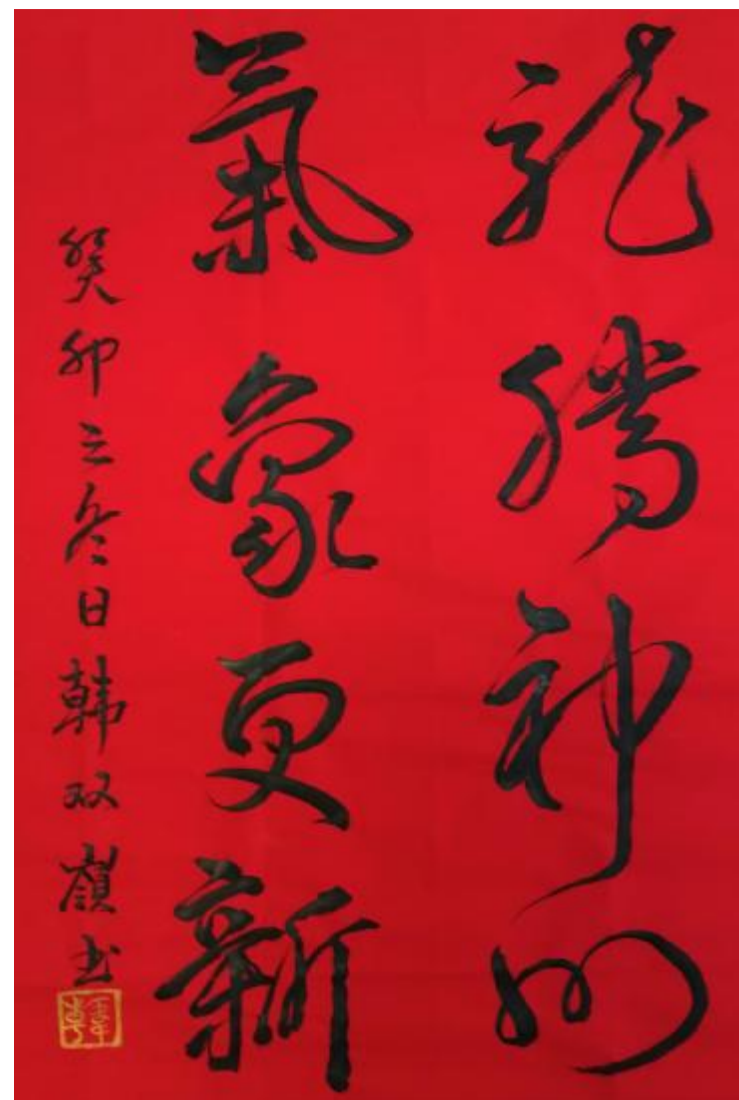 龍腾神州
氣象更新
癸卯之冬日韩双嶺书